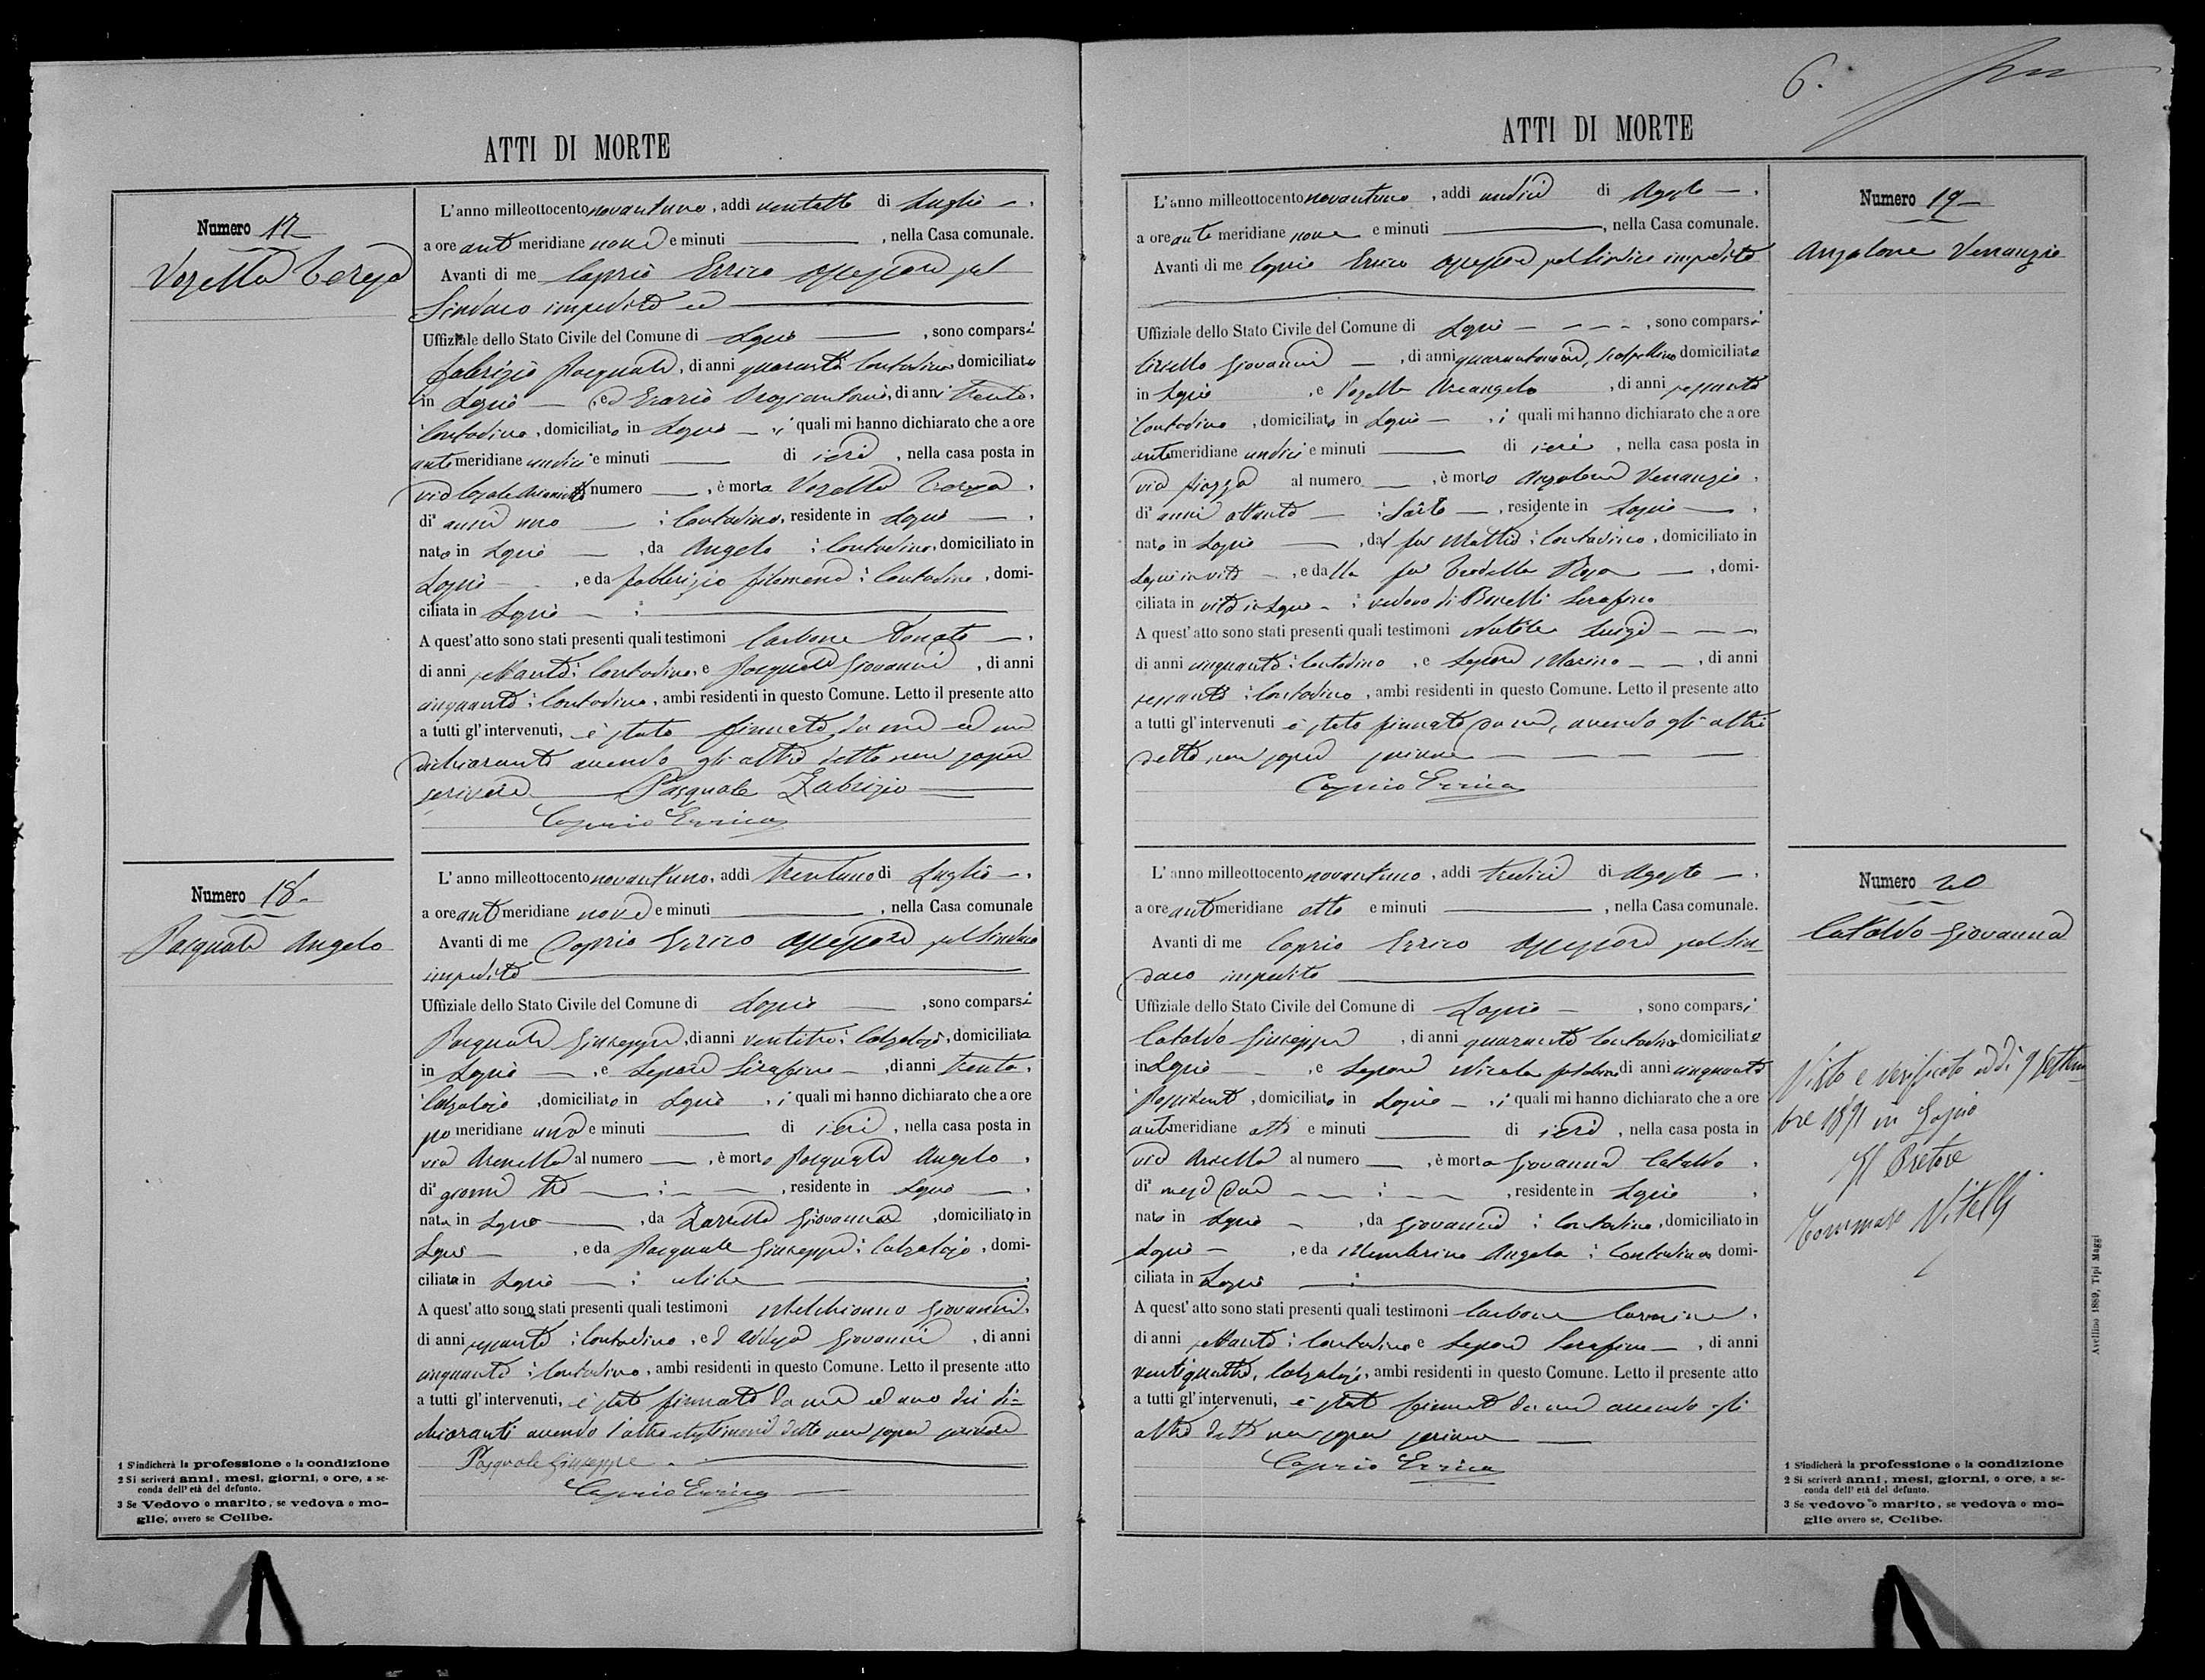 ATTI DI MORTE
Numero 17
Vozella Teresa
L'anno milleottocento novantuno, addì ventotto di Luglio
a ore ante meridiane nove e minuti , nella Casa comunale.
Avanti di me Caprio Errico Assessore pel
Sindaco impedito ed
Uffiziale dello Stato Civile del Comune di Lapio , sono comparsi
Fabrizio Pasquale, di anni quaranta Contadino domiciliato
in Lapio , ed di anni trenta,
Contadino, domiciliato in Lapio , i quali mi hanno dichiarato che a ore
ante meridiane undici e minuti di ieri , nella casa posta in
via numero , è morta Vozella Teresa ,
di anni uno , Contadina, residente in Lapio
nata in Lapio , da Angelo Contadino, domiciliato in
Lapio , e da Fabbrizio Filomena Contadina, domi-
ciliata in Lapio
A quest'atto sono stati presenti quali testimoni Carbone Donato ,
di anni settanta Contadino, e Pasquale Giovanni , di anni
cinquanta Contadino, ambi residenti in questo Comune. Letto il presente atto
a tutti gl'intervenuti, è stato firmato da me ed un
dichiarante avendo gli altri detto non sapere
scrivere Pasquale Fabrizio
Caprio Errico
Numero 18
Pasquale Angelo
L'anno milleottocento novantuno, addì trentuno di Luglio
a ore ante meridiane nove e minuti , nella Casa comunale
Avanti di me Caprio Errico Assessore pel Sindaco
impedito
Uffiziale dello Stato Civile del Comune di Lapio , sono comparsi
Pasquale Giuseppe, di anni ventitre Calzolajo, domiciliato
in Lapio , e Lepore Serafino , di anni trenta,
Calzolajo, domiciliato in Lapio , i quali mi hanno dichiarato che a ore
po meridiane una e minuti di ieri , nella casa posta in
via Arenella al numero , è morto Pasquale Angelo ,
di giorni tre , residente in Lapio
nato in Lapio , da Zarrella Giovanna , domiciliato in
Lapio , e da Pasquale Giuseppe Calzolajo, domi-
ciliata in Lapio celibe
A quest'atto sono stati presenti quali testimoni Melchionno Giovanni,
di anni sessanta Contadino, ed Addesa Giovanni , di anni
cinquanta Contadino, ambi residenti in questo Comune. Letto il presente atto
a tutti gl'intervenuti, è stato firmato da me ed uno dei di=
chiaranti avendo l'altro e testimoni detto non sapere scrivere
Pasquale Giuseppe
Caprio Errico
1 S'indicherà la professione o la condizione
2 Si scriverà anni, mesi, giorni, o ore, a se-
conda dell'età del defunto.
3 Se Vedovo o marito, se vedova o mo-
glie, ovvero se Celibe.
6.
ATTI DI MORTE
L'anno milleottocento novantuno, addì undici di Agosto
a ore ante meridiane nove e minuti , nella Casa comunale.
Avanti di me Caprio Errico Assessore pel Sindaco impedito
Uffiziale dello Stato Civile del Comune di Lapio , sono comparsi
Giovanni , di anni scalpellino domiciliato
in Lapio , e Vozella Arcangelo , di anni sessanta
Contadino, domiciliato in Lapio , i quali mi hanno dichiarato che a ore
ante meridiane undici e minuti di ieri , nella casa posta in
via Piazza al numero , è morto Anzalone Venanzio ,
di anni ottanta Sarto , residente in Lapio
nato in Lapio , dal fu Mattia Contadino, domiciliato in
Lapio in vita , e dalla fu Rosa , domi-
ciliata in vita in Lapio vedovo di Bonelli Serafina
A quest'atto sono stati presenti quali testimoni Nutile Luigi
di anni cinquanta Contadino , e Lepore Marino , di anni
sessanta Contadino, ambi residenti in questo Comune. Letto il presente atto
a tutti gl'intervenuti è stato firmato da me, avendo gli altri
detto non sapere scrivere
Caprio Errico
Numero 19
Anzalone Venanzio
L'anno milleottocento novantuno, addì tredici di Agosto
a ore ante meridiane otto e minuti , nella Casa comunale.
Avanti di me Caprio Errico Assessore pel Sin=
daco impedito
Uffiziale dello Stato Civile del Comune di Lapio , sono comparsi
Cataldo Giuseppe , di anni quaranta Contadino domiciliato
in Lapio , e Lepore Nicola di anni cinquanta
Possidente, domiciliato in Lapio , i quali mi hanno dichiarato che a ore
ante meridiane otto e minuti di ieri , nella casa posta in
via al numero , è morta Giovanna Cataldo ,
di mesi due , residente in Lapio ,
nata in Lapio , da Giovanni Contadino, domiciliato in
Lapio , e da Membrino Angela Contadina domi-
ciliata in Lapio
A quest'atto sono stati presenti quali testimoni Carbone Carmine ,
di anni settanta Contadino e Lepore Serafino , di anni
ventiquattro, Calzolajo, ambi residenti in questo Comune. Letto il presente atto
a tutti gl'intervenuti, è stato firmato da me avendo gli
altri detto non sapere scrivere
Caprio Errico
Numero 20
Cataldo Giovanna
Visto e verificato addì 9 Settem
bre 1891 in Lapio
Il Pretore
Tommaso Vitelli
1 S'indicherà la professione o la condizione
2 Si scriverà anni, mesi, giorni, o ore, a se-
conda dell'età del defunto.
3 Se vedovo o marito, se vedova o mo-
glie ovvero se, Celibe.
Avellino 1889, Tipi Maggi